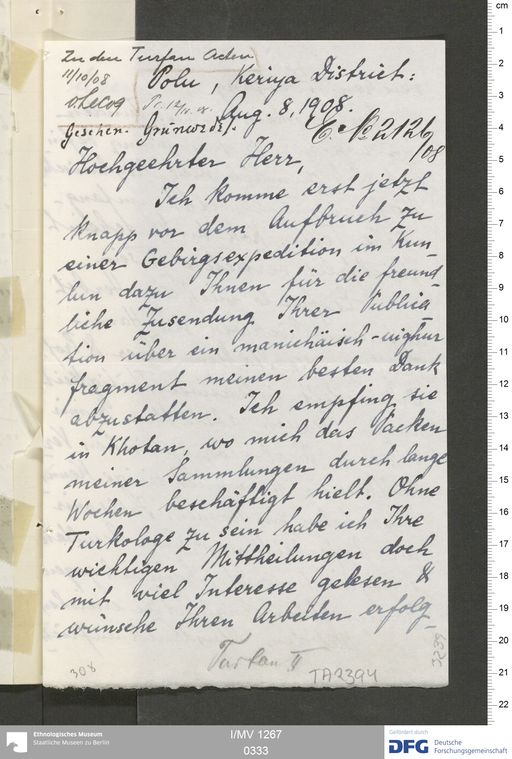 Zu den Turfan Acten
11/10/08
v. Lecoq
Polu, Keriya District:
Aug. 8, 1908.
Gesehen. Grünwedel.
E. № 2126/08
Hochgeehrter Herr,
Ich komme erst jetzt
knapp vor dem Aufbruch zu
einer Gebirgsexpedition im Kun-
lun dazu Ihnen für die freund
liche Zusendung Ihrer Publica-
tion über ein manichäisch-uighur
fragment meinen besten Dank
abzustatten. Ich empfing sie
in Khotan, wo mich das Packen
meiner Sammlungen durch lange
Wochen beschäftigt hielt. Ohne
Turkologe zu sein habe ich Ihre
wichtigen Mittheilungen doch
mit viel Interesse gelesen &
wünsche Ihren Arbeiten erfolg-
Turfan II
308
TA2394
3239
Ethnologisches Museum
Staatliche Museen zu Berlin
I/MV 1267
0333
Gefördert durch
DFG Deutsche
Forschungsgemeinschaft
cm
1
2
3
4
5
6
7
8
9
10
11
12
13
14
15
16
17
18
19
20
21
22